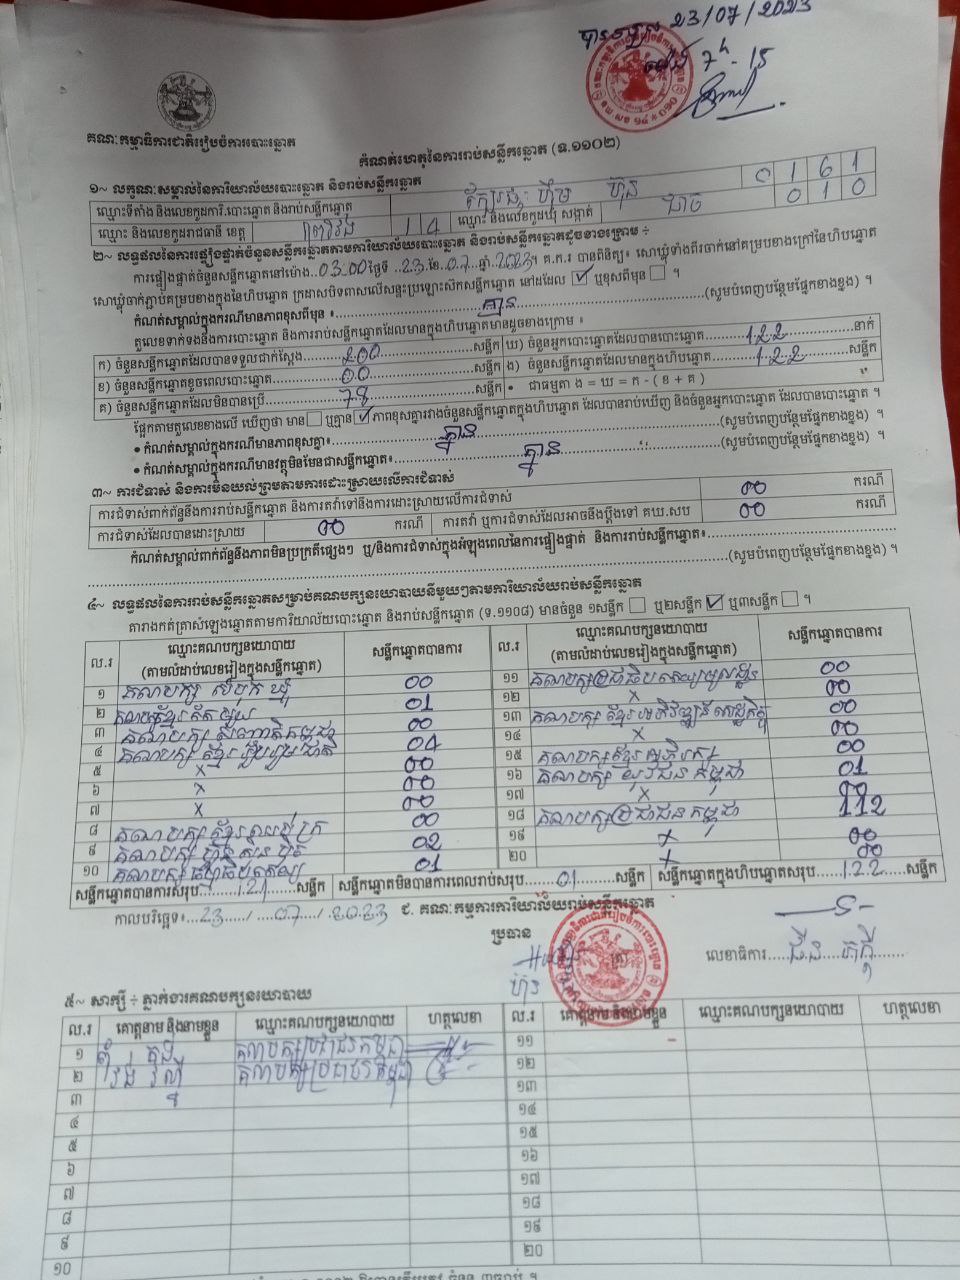 បានបញ្ចប់ 23/07/2023
ម៉ោង 7h - 15
គណៈកម្មាធិការជាតិរៀបចំការបោះឆ្នោត
កំណត់ហេតុនៃការរាប់សន្លឹកឆ្នោត (ទ.១១០២)
១~ លក្ខណៈសម្គាល់នៃការិយាល័យបោះឆ្នោត និងរាប់សន្លឹកឆ្នោត
ឈ្មោះទីតាំង និងលេខកូដការិ.បោះឆ្នោត និងរាប់សន្លឹកឆ្នោត 0 1 6 1
ឈ្មោះ និងលេខកូដរាជធានី ខេត្ត ព្រៃវែង 1 4 ឈ្មោះ និងលេខកូដឃុំ សង្កាត់ 0 1 0
២~ លទ្ធផលនៃការផ្ទៀងផ្ទាត់ចំនួនសន្លឹកឆ្នោតតាមការិយាល័យបោះឆ្នោត និងរាប់សន្លឹកឆ្នោតដូចខាងក្រោម ÷
ការផ្ទៀងផ្ទាត់ចំនួនសន្លឹកឆ្នោតនៅម៉ោង..03:00ថ្ងៃទី ..23..ខែ..07...ឆ្នាំ..2023។ គ.ក.រ បានពិនិត្យ៖ សោឃ្លុំទាំងពីរចាក់នៅគម្របខាងក្រៅនៃហិបឆ្នោត
សោឃ្លុំចាក់ភ្ជាប់គម្របខាងក្នុងនៃហិបឆ្នោត ក្រដាសបិទពាសលើសន្ទះប្រឡោះសិកសន្លឹកឆ្នោត នៅដដែល ☑ ឬខុសពីមុន ☐ ។
កំណត់សម្គាល់ក្នុងករណីមានភាពខុសពីមុន ៖ គ្មាន (សូមបំពេញបន្ថែមផ្នែកខាងខ្នង) ។
តួលេខទាក់ទងនឹងការបោះឆ្នោត និងការរាប់សន្លឹកឆ្នោតដែលមានក្នុងហិបឆ្នោតមានដូចខាងក្រោម ៖
ក) ចំនួនសន្លឹកឆ្នោតដែលបានទទួលជាក់ស្តែង 200 សន្លឹក ឃ) ចំនួនអ្នកបោះឆ្នោតដែលបានបោះឆ្នោត 122 នាក់
ខ) ចំនួនសន្លឹកឆ្នោតខូចពេលបោះឆ្នោត 00 សន្លឹក ង) ចំនួនសន្លឹកឆ្នោតដែលមានក្នុងហិបឆ្នោត 122 សន្លឹក
គ) ចំនួនសន្លឹកឆ្នោតដែលមិនបានប្រើ 78 សន្លឹក • ជាធម្មតា ង = ឃ = ក - ( ខ + គ )
ផ្អែកតាមតួលេខខាងលើ ឃើញថា មាន ☐ ឬគ្មាន ☑ ភាពខុសគ្នារវាងចំនួនសន្លឹកឆ្នោតក្នុងហិបឆ្នោត ដែលបានរាប់ឃើញ និងចំនួនអ្នកបោះឆ្នោត ដែលបានបោះឆ្នោត ។
• កំណត់សម្គាល់ក្នុងករណីមានភាពខុសគ្នា៖ គ្មាន (សូមបំពេញបន្ថែមផ្នែកខាងខ្នង) ។
• កំណត់សម្គាល់ក្នុងករណីមានវត្ថុមិនមែនជាសន្លឹកឆ្នោត៖ គ្មាន (សូមបំពេញបន្ថែមផ្នែកខាងខ្នង) ។
៣~ ការជំទាស់ និងការមិនយល់ព្រមតាមការដោះស្រាយលើការជំទាស់
ការជំទាស់ពាក់ព័ន្ធនឹងការរាប់សន្លឹកឆ្នោត និងការតវ៉ាទៅនឹងការដោះស្រាយលើការជំទាស់ 00 ករណី
ការជំទាស់ដែលបានដោះស្រាយ 00 ករណី ការតវ៉ា ឬការជំទាស់ដែលអាចនឹងប្តឹងទៅ គឃ.សប 00 ករណី
កំណត់សម្គាល់ពាក់ព័ន្ធនឹងភាពមិនប្រក្រតីផ្សេងៗ ឬ/និងការជំទាស់ក្នុងអំឡុងពេលនៃការផ្ទៀងផ្ទាត់ និងការរាប់សន្លឹកឆ្នោត៖
(សូមបំពេញបន្ថែមផ្នែកខាងខ្នង) ។
៤~ លទ្ធផលនៃការរាប់សន្លឹកឆ្នោតសម្រាប់គណបក្សនយោបាយនីមួយៗតាមការិយាល័យរាប់សន្លឹកឆ្នោត
តារាងកត់ត្រាសំឡេងឆ្នោតតាមការិយាល័យបោះឆ្នោត និងរាប់សន្លឹកឆ្នោត (ទ.១១០៨) មានចំនួន ១សន្លឹក ☐ ឬ២សន្លឹក ☑ ឬ៣សន្លឹក ☐ ។
ល.រ ឈ្មោះគណបក្សនយោបាយ (តាមលំដាប់លេខរៀងក្នុងសន្លឹកឆ្នោត) សន្លឹកឆ្នោតបានការ ល.រ ឈ្មោះគណបក្សនយោបាយ (តាមលំដាប់លេខរៀងក្នុងសន្លឹកឆ្នោត) សន្លឹកឆ្នោតបានការ
១ គណបក្ស សំបុក ឃ្មុំ 00 ១១ គណបក្សប្រជាធិបតេយ្យមូលដ្ឋាន 00
២ គណបក្សខ្មែរតែមួយ 01 ១២ x 00
៣ គណបក្ស 00 ១៣ គណបក្ស ខ្មែរអភិវឌ្ឍន៍សេដ្ឋកិច្ច 00
៤ គណបក្ស ខ្មែរ រួបរួមជាតិ 04 ១៤ x 00
៥ x 00 ១៥ គណបក្ស ខ្មែរអភិរក្ស 00
៦ x 00 ១៦ គណបក្ស យុវជនកម្ពុជា 01
៧ x 00 ១៧ x 00
៨ គណបក្ស ខ្មែរ 00 ១៨ គណបក្សប្រជាជនកម្ពុជា 112
៩ គណបក្ស ហ្វ៊ុនស៊ិនប៉ិច 02 ១៩ x 00
១០ គណបក្ស ធម្មាធិបតេយ្យ 01 ២០ x 00
សន្លឹកឆ្នោតបានការសរុប 121 សន្លឹក សន្លឹកឆ្នោតមិនបានការពេលរាប់សរុប 01 សន្លឹក សន្លឹកឆ្នោតក្នុងហិបឆ្នោតសរុប 122 សន្លឹក
កាលបរិច្ឆេទ៖ 23 / 07 / 2023 ៩. គណៈកម្មការការិយាល័យរាប់សន្លឹកឆ្នោត
ប្រធាន
លេខាធិការ
៥~ សាក្សី ÷ ភ្នាក់ងារគណបក្សនយោបាយ
ល.រ គោត្តនាម និងនាមខ្លួន ឈ្មោះគណបក្សនយោបាយ ហត្ថលេខា ល.រ គោត្តនាម និងនាមខ្លួន ឈ្មោះគណបក្សនយោបាយ ហត្ថលេខា
១ គណបក្សប្រជាជនកម្ពុជា ១១
២ គណបក្សប្រជាជនកម្ពុជា ១២
៣ ១៣
៤ ១៤
៥ ១៥
៦ ១៦
៧ ១៧
៨ ១៨
៩ ១៩
១០ ២០